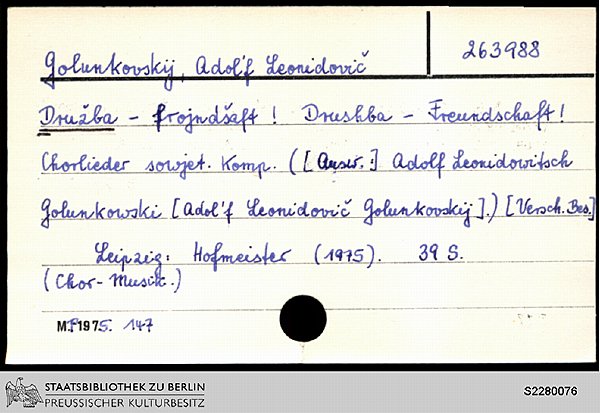 Golunkovskij, Adol'f Leonidovič
263988
Družba - frojndšaft ! Drushba - Freundschaft !
Chorlieder sowjet. Komp. ([Ausw.:] Adolf Leonidowitsch
Golunkowski [Adol'f Leonidovič Golunkovskij].) [Versch. Bes.]
Leipzig: Hofmeister (1975). 39 S.
(Chor-Musik.)
MF1975. 147
STAATSBIBLIOTHEK ZU BERLIN
PREUSSISCHER KULTURBESITZ
S2280076